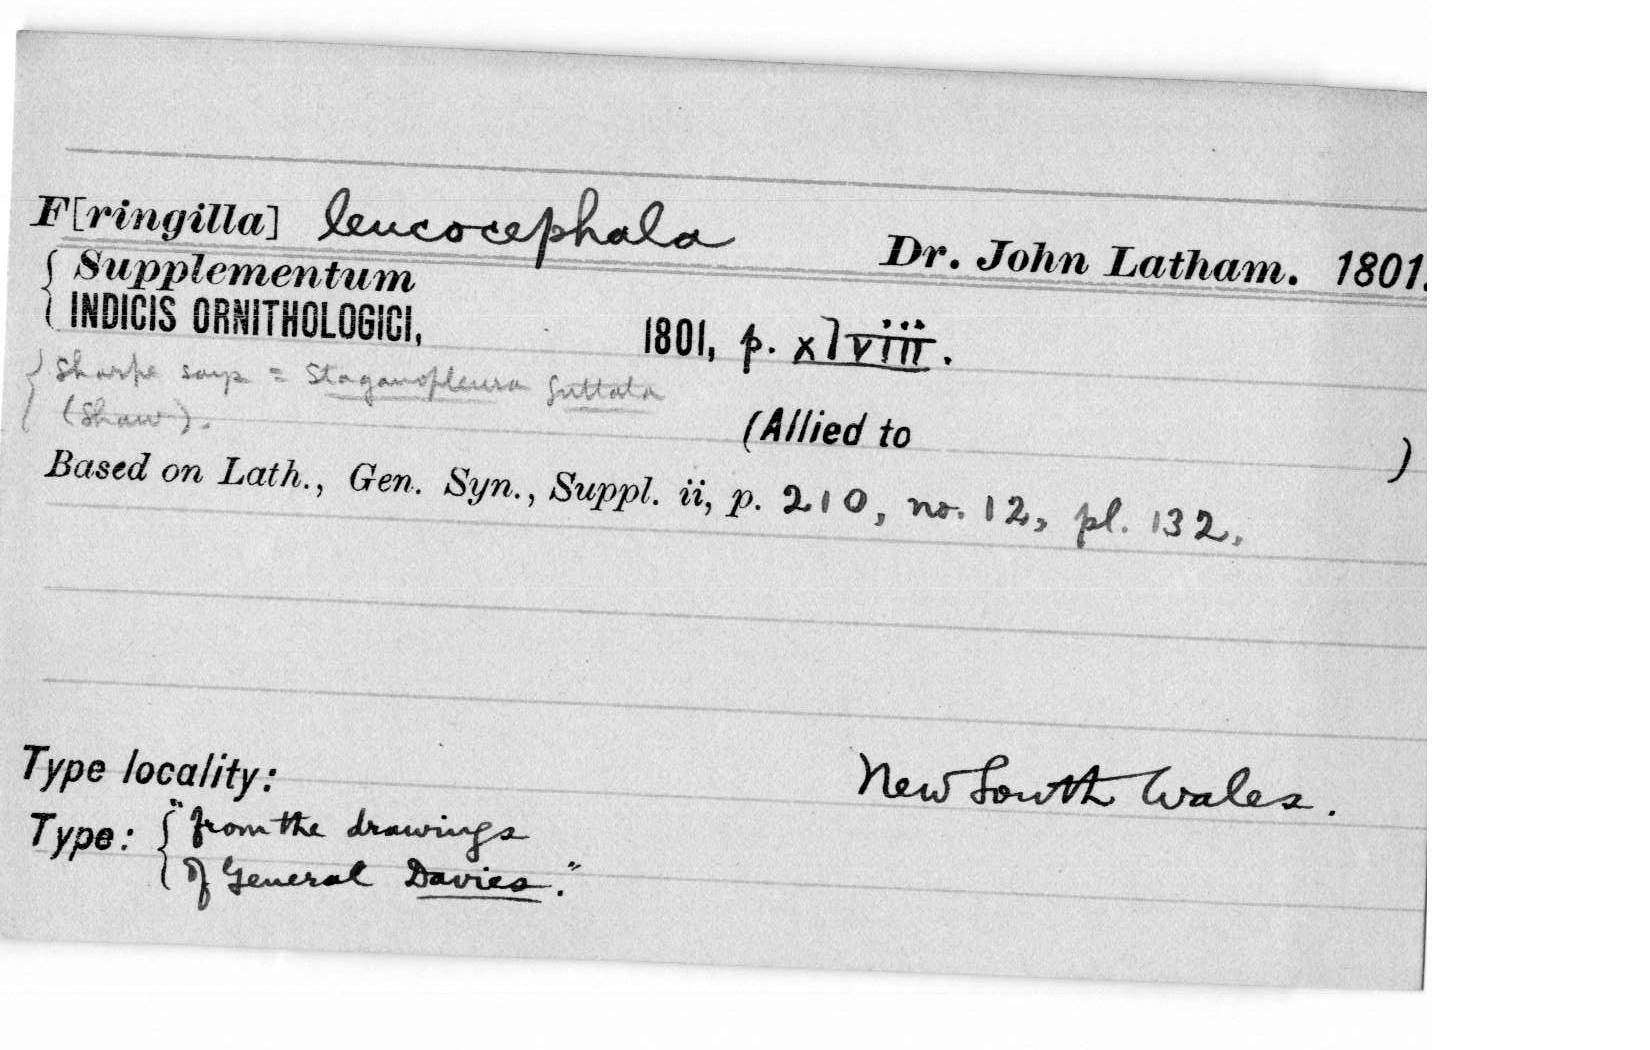 F[ringilla] leucocephala Dr. John Latham. 1801.
{ Supplementum
INDICIS ORNITHOLOGICI, 1801, p. xlviii.
{ Sharpe says = Staganopleura guttata
(Shaw). (Allied to )
Based on Lath., Gen. Syn., Suppl. ii, p. 210, no. 12, pl. 132.
Type locality: New South Wales.
Type: { "from the drawings
of General Davies."